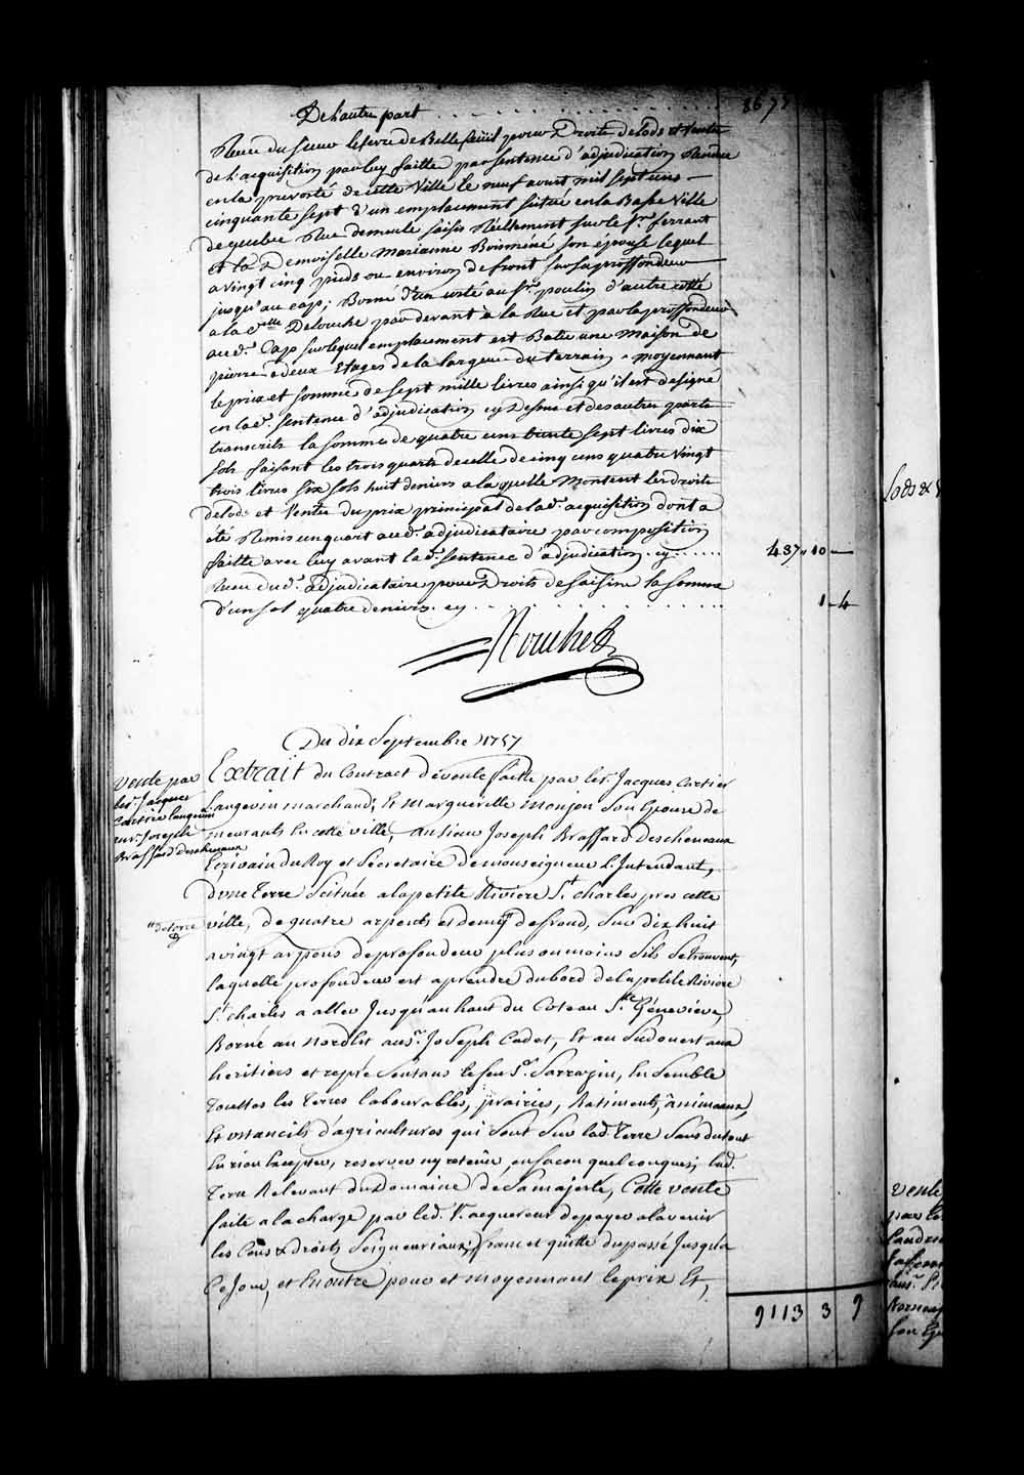 De l'autre part
Receu du Sieur lefevre de Bellefeüil pour Droits de lods et vente
de l'acquisition par luy faitte par sentence d'adjudication Rendue
en la prevosté de cette Ville le neuf aoust mil sept cens
cinquante sept d'un emplacement situé en la Basse Ville
de quebec Rue demeule saisis Réellement sur le Sr. ferrant
et la Demoiselle Marianne Boisméné son épouse lequel
a vingt cinq pieds ou environ de front sur sa proffondeur
jusqu'au cap; Borné d'un costé au Sr. poulin d'autre costé
a la delle Delouche par devant à la Rue et par la proffondeur
aud. Cap sur lequel emplacement est Batie une Maison de
pierre a deux Etages de la largeur du terrain moyennant
le prix et somme de sept mille livres ainsi qu'il est designé
en lad. sentence d'adjudication cy Dessus et des autres parts
transcrits la somme de quatre cens trente sept livres dix
sols faisant les trois quarts de celle de cinq cens quatre Vingt
trois livres six sols huit deniers a la quelle Montent les droits
de lods et Ventes du prix principal de lad. acquisition dont a
été Remis un quart aud. adjudicataire par composition
faitte avec luy avant lad. sentence d'adjudication. cy 437,, 10 —
Receu dud. adjudicataire pour Droits de saisine la somme
d'un sol quatre deniers. cy 1 - 4
Du dix Septembre 1757
Vente par
les Sr. Jacques
Cartier langevin
au Sr. Joseph
Brassard Descheneaux
Extrait du Contract de vente faitte par le Sr. Jacques Cartier
Langevin marchand; Et Margueritte Monjon Son Epouse de
meurants En cette ville, au sieur Joseph Brassard Descheneaux
Ecrivain du Roy et Secretaire de monseigneur L'Intendant,
d'une Terre Scituée a la petite Riviere St. charles pres cette
ville, de quatre arpents et demy de froud, Sur dix huit
a vingt arpens de profondeur plus ou moins Sils Se trouvent,
laquelle profondeur est a prendre du bord de la petite Riviere
St. charles a aller Jusqu'au haut du Coteau Ste. Géneviéve,
Borné au Nord Est au Sr. Joseph Cadet, Et au Sudouest aux
heritiers et représentans le feu Sr. Sarrazin, Ensemble
Touttes les Terres labourables, prairies, Batiments, animaux,
Et ustancils d'agricultures qui Sont Sur lad. Terre Sans du tout
En rien Excepter, reserver ny retenir en facon quelconques; lad.
Terre Relevant du Domaine de Sa majesté, Cette vente
faite a la charge par led. Sr. acquereur de payer a lavenir
les Cens & droits Seigneuriaux, franc et quitte du passé Jusqu'a
Ce Jour, et En outre pour et moyennant le prix Et,
9113 3 9
Lods & V
Vente
par le